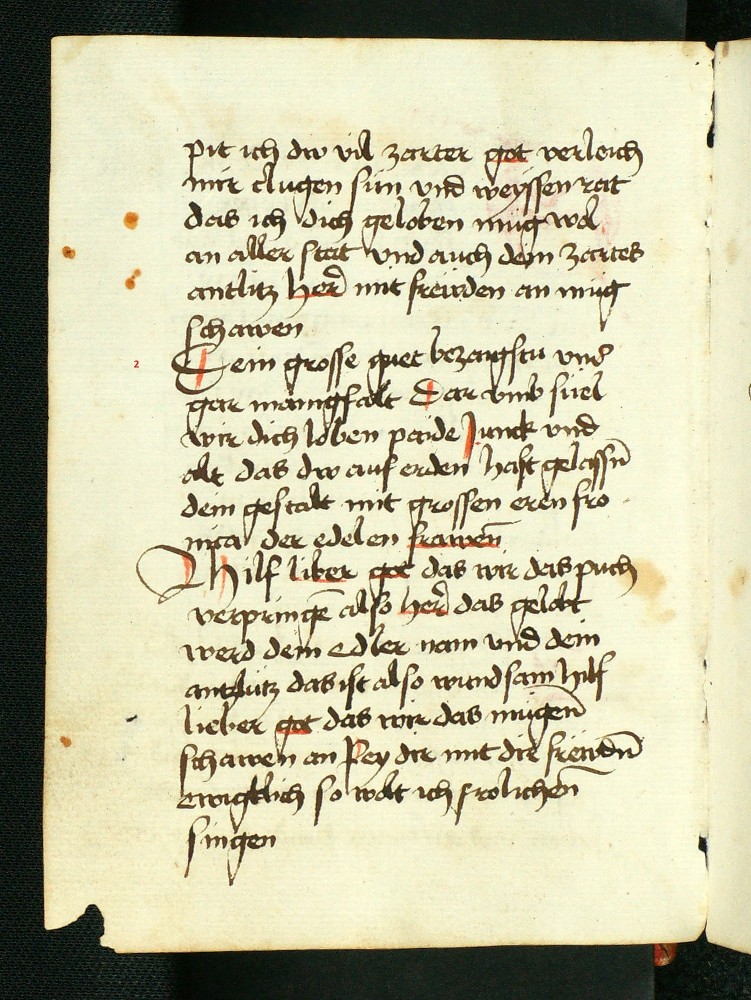 pit ich dw vil zarter got verleich
mir clugen sün vnd weyssen rat
das ich dich geloben müg wol
an aller stat vnd auch dein zartes
antlitz her᷑ mit freẅden an müg
schawen
2
Dein grosse guet bezaugstu vns
gar manigfalt Dar vmb süel
wir dich loben paide Junck vnd
alt das dw auf erden hast gelassñ
dein gestalt mit grossen eren fro
nica der edelen frawen̄
Hilf liber got das wir das puch
verpringē also her᷑ das gelobt
werd dein edler nam vnd dein
antzlütz das ist also wundsam hilf
lieber got das wir das mügen̄
schawen an Pey dir mit dir freẅdn̄
ewigklich so wolt ich frolichen̄
singen